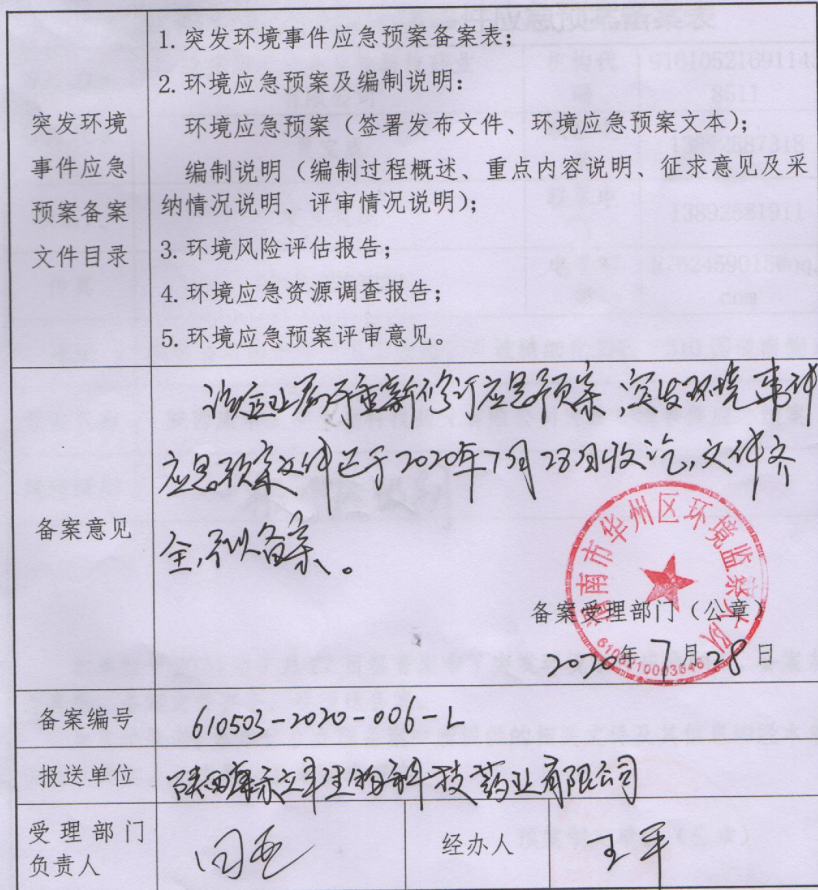 突发环境
事件应急
预案备案
文件目录
1.突发环境事件应急预案备案表；
2.环境应急预案及编制说明：
环境应急预案（签署发布文件、环境应急预案文本）；
编制说明（编制过程概述、重点内容说明、征求意见及采
纳情况说明、评审情况说明）；
3.环境风险评估报告；
4.环境应急资源调查报告；
5.环境应急预案评审意见。
备案意见
该企业属于重新修订应急预案，突发环境事件
应急预案文件已于2020年7月28日收讫，文件齐
全，予以备案。
渭南市华州区环境监察大队
备案受理部门（公章）
2020年7月28日
备案编号
610503-2020-006-L
报送单位
陕西 生物科技药业有限公司
受理部门
负责人
经办人
王平